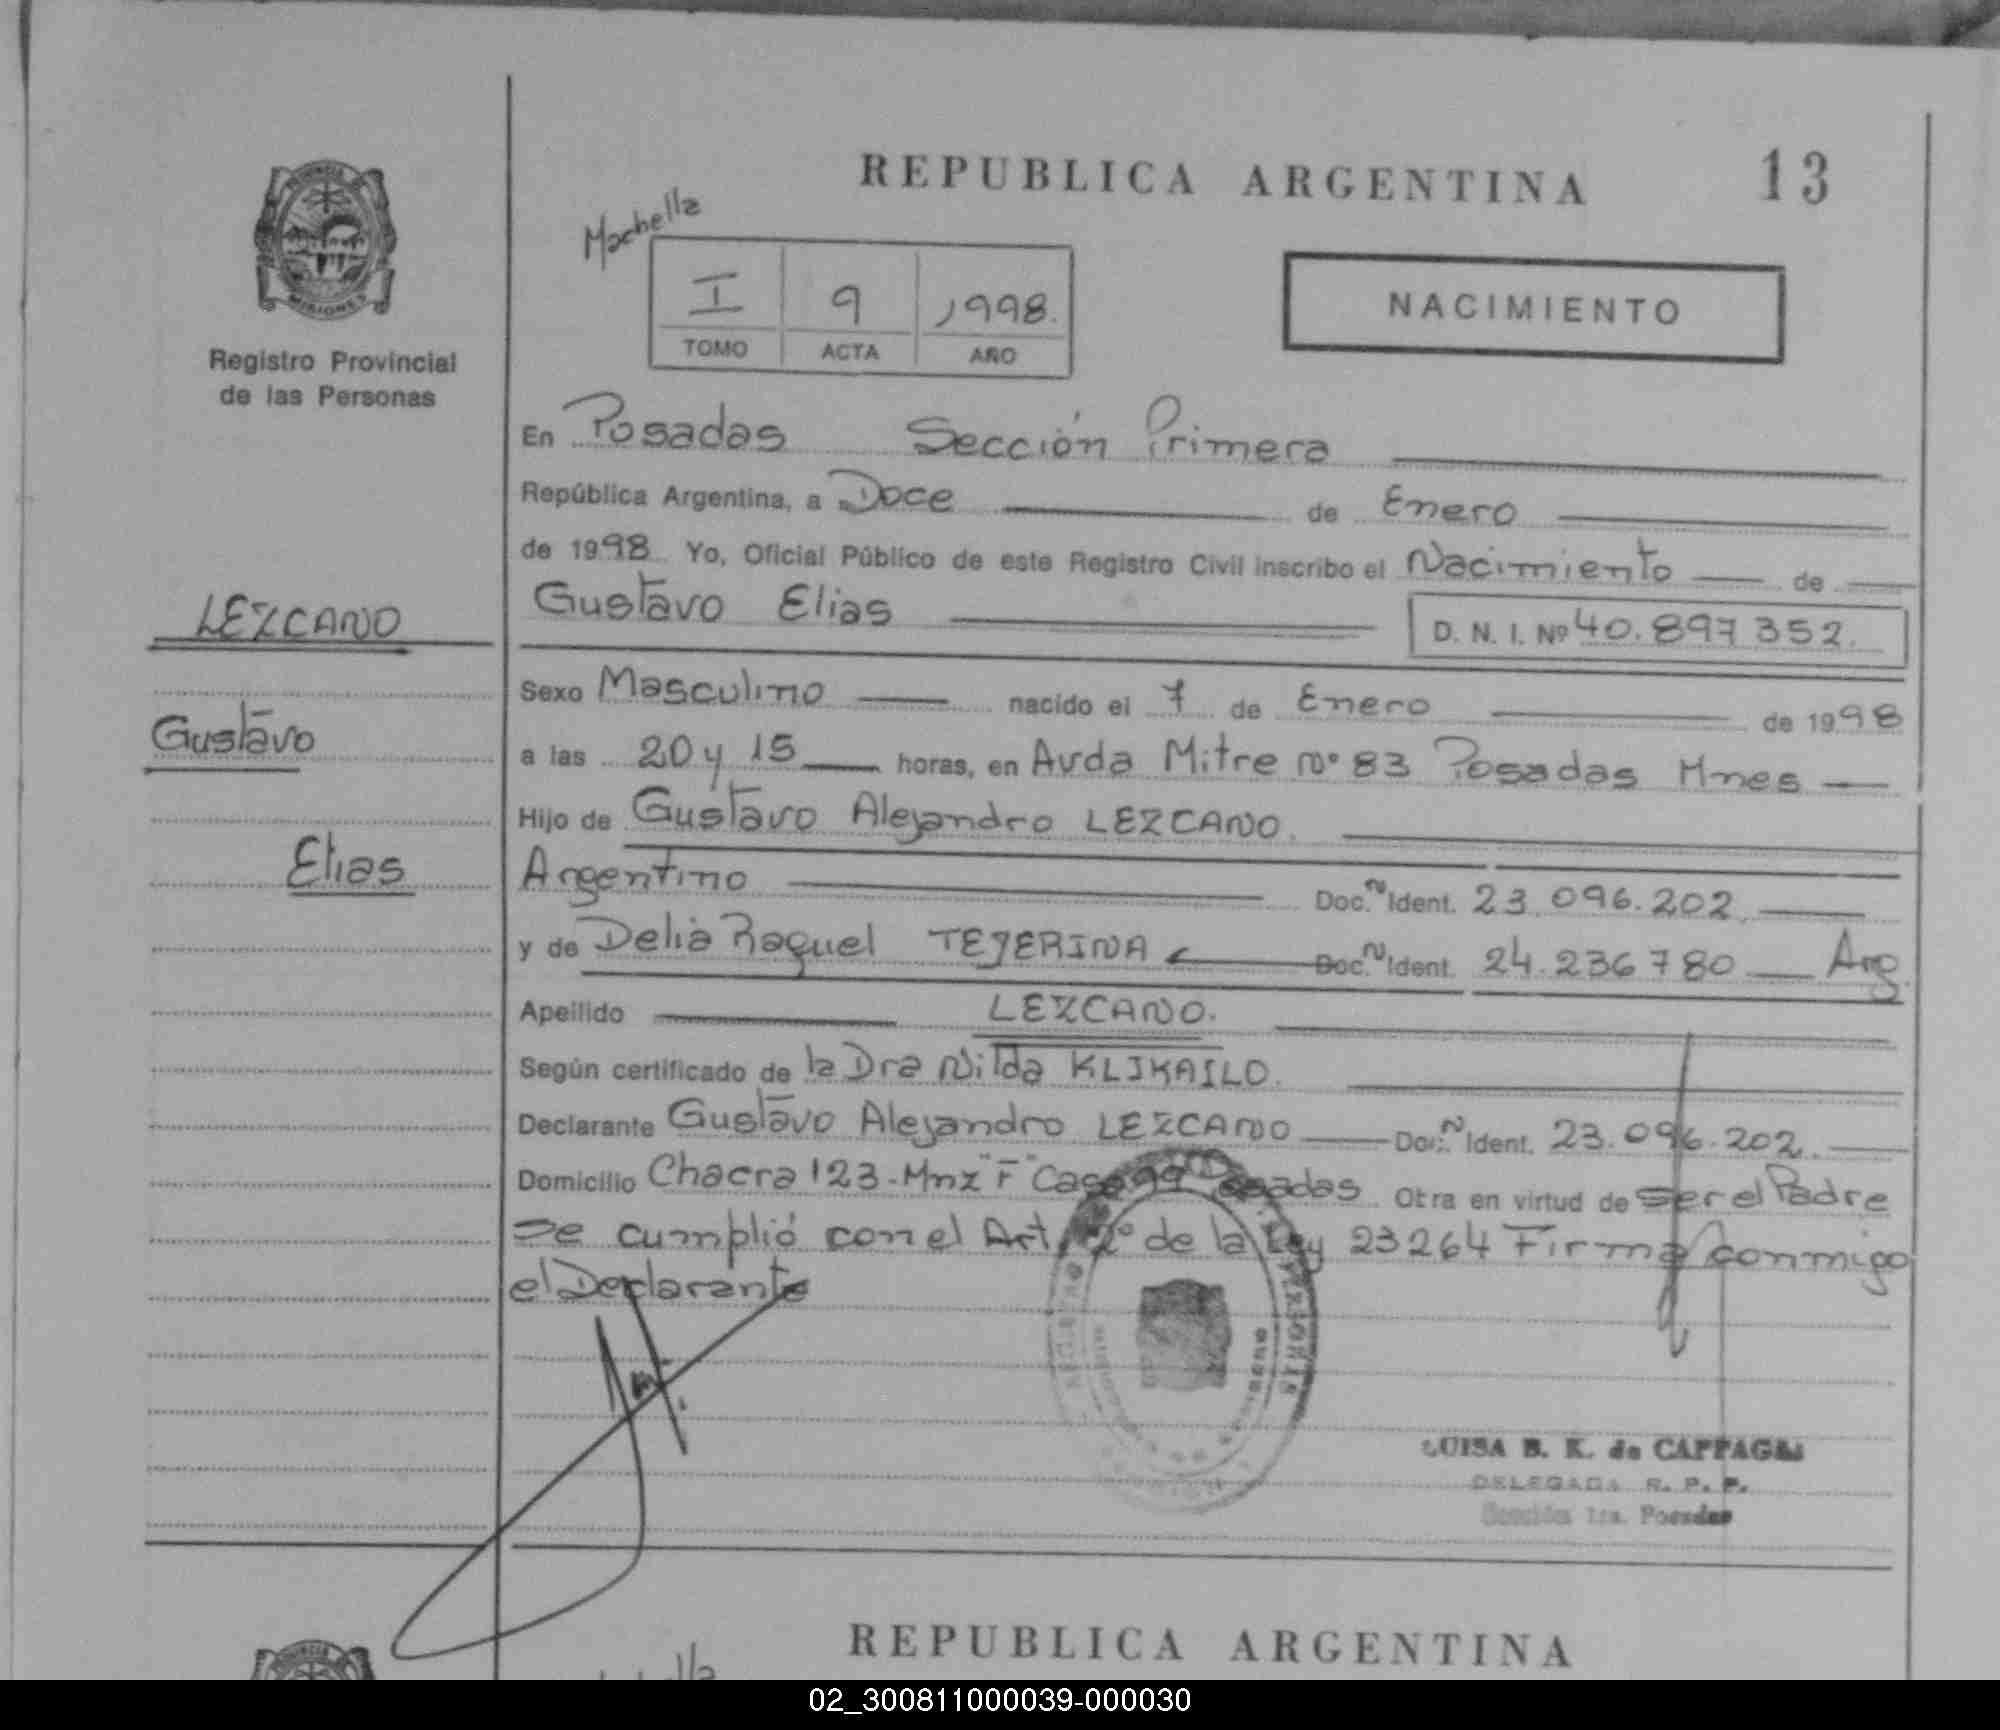 REPUBLICA ARGENTINA 13
PROVINCIA DE
MISIONES
Registro Provincial
de las Personas
Machella
I 9 1998.
TOMO ACTA AÑO
NACIMIENTO
En Posadas Sección Primera
República Argentina, a Doce de Enero
de 1998 Yo, Oficial Público de este Registro Civil inscribo el Nacimiento de
LEZCANO
Gustavo Elias D. N. I. Nº 40.897352.
Sexo Masculino nacido el 7 de Enero de 1998
Gustavo
a las 20 y 15 horas, en Avda Mitre nº 83 Posadas Mnes
Hijo de Gustavo Alejandro LEZCANO.
Elias
Argentino Doc. N Ident. 23.096.202.
y de Delia Raquel TEJERINA Doc. N Ident. 24.236780 Arg.
Apellido LEZCANO.
Según certificado de la Dra Nilda KLIKAILO.
Declarante Gustavo Alejandro LEZCANO Doc. N Ident. 23.096.202.
Domicilio Chacra 123-Mnz "F" Casa Posadas Otra en virtud de ser el Padre
se cumplió con el Art 2º de la Ley 23264 Firma conmigo
el Declarante
LUISA B. K. de CAFFAGNI
DELEGADA R. P. P.
Sección 1ra. Posadas
REPUBLICA ARGENTINA
02_300811000039-000030